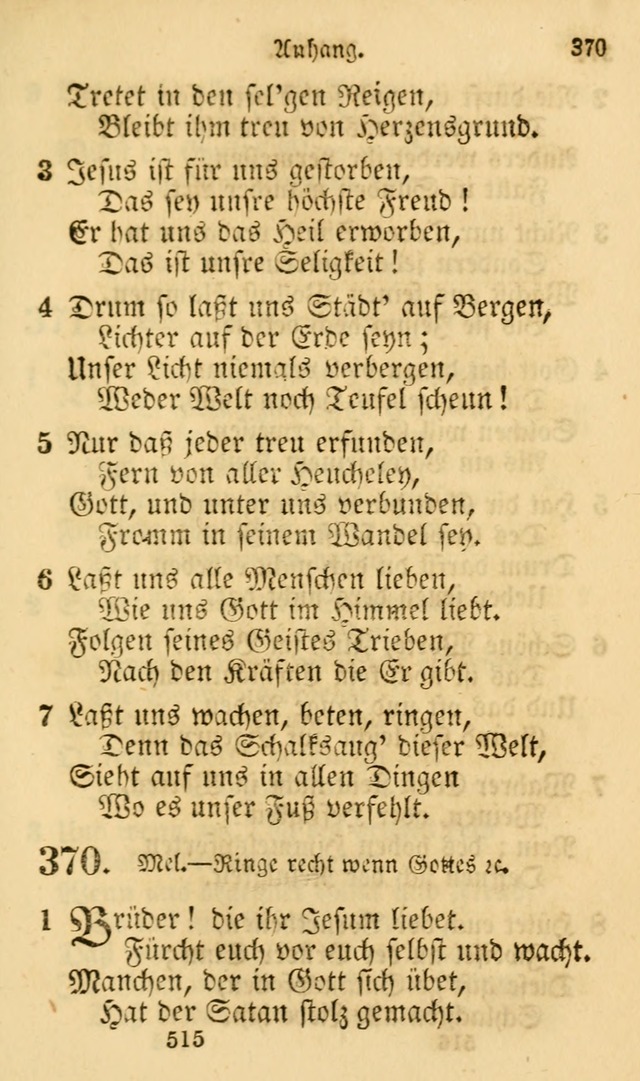 Anhang. 370
Tretet in den sel'gen Reigen,
Bleibt ihm treu von Herzensgrund.
3 Jesus ist für uns gestorben,
Das sey unsre höchste Freud!
Er hat uns das Heil erworben,
Das ist unsre Seligkeit!
4 Drum so laßt uns Städt' auf Bergen,
Lichter auf der Erde seyn;
Unser Licht niemals verbergen,
Weder Welt noch Teufel scheun!
5 Nur daß jeder treu erfunden,
Fern von aller Heucheley,
Gott, und unter uns verbunden,
Fromm in seinem Wandel sey.
6 Laßt uns alle Menschen lieben,
Wie uns Gott im Himmel liebt.
Folgen seines Geistes Trieben,
Nach den Kräften die Er gibt.
7 Laßt uns wachen, beten, ringen,
Denn das Schalksaug' dieser Welt,
Sieht auf uns in allen Dingen
Wo es unser Fuß verfehlt.
370. Mel.—Ringe recht wenn Gottes ꝛc.
1 Brüder! die ihr Jesum liebet.
Fürcht euch vor euch selbst und wacht.
Manchen, der in Gott sich übet,
Hat der Satan stolz gemacht.
515